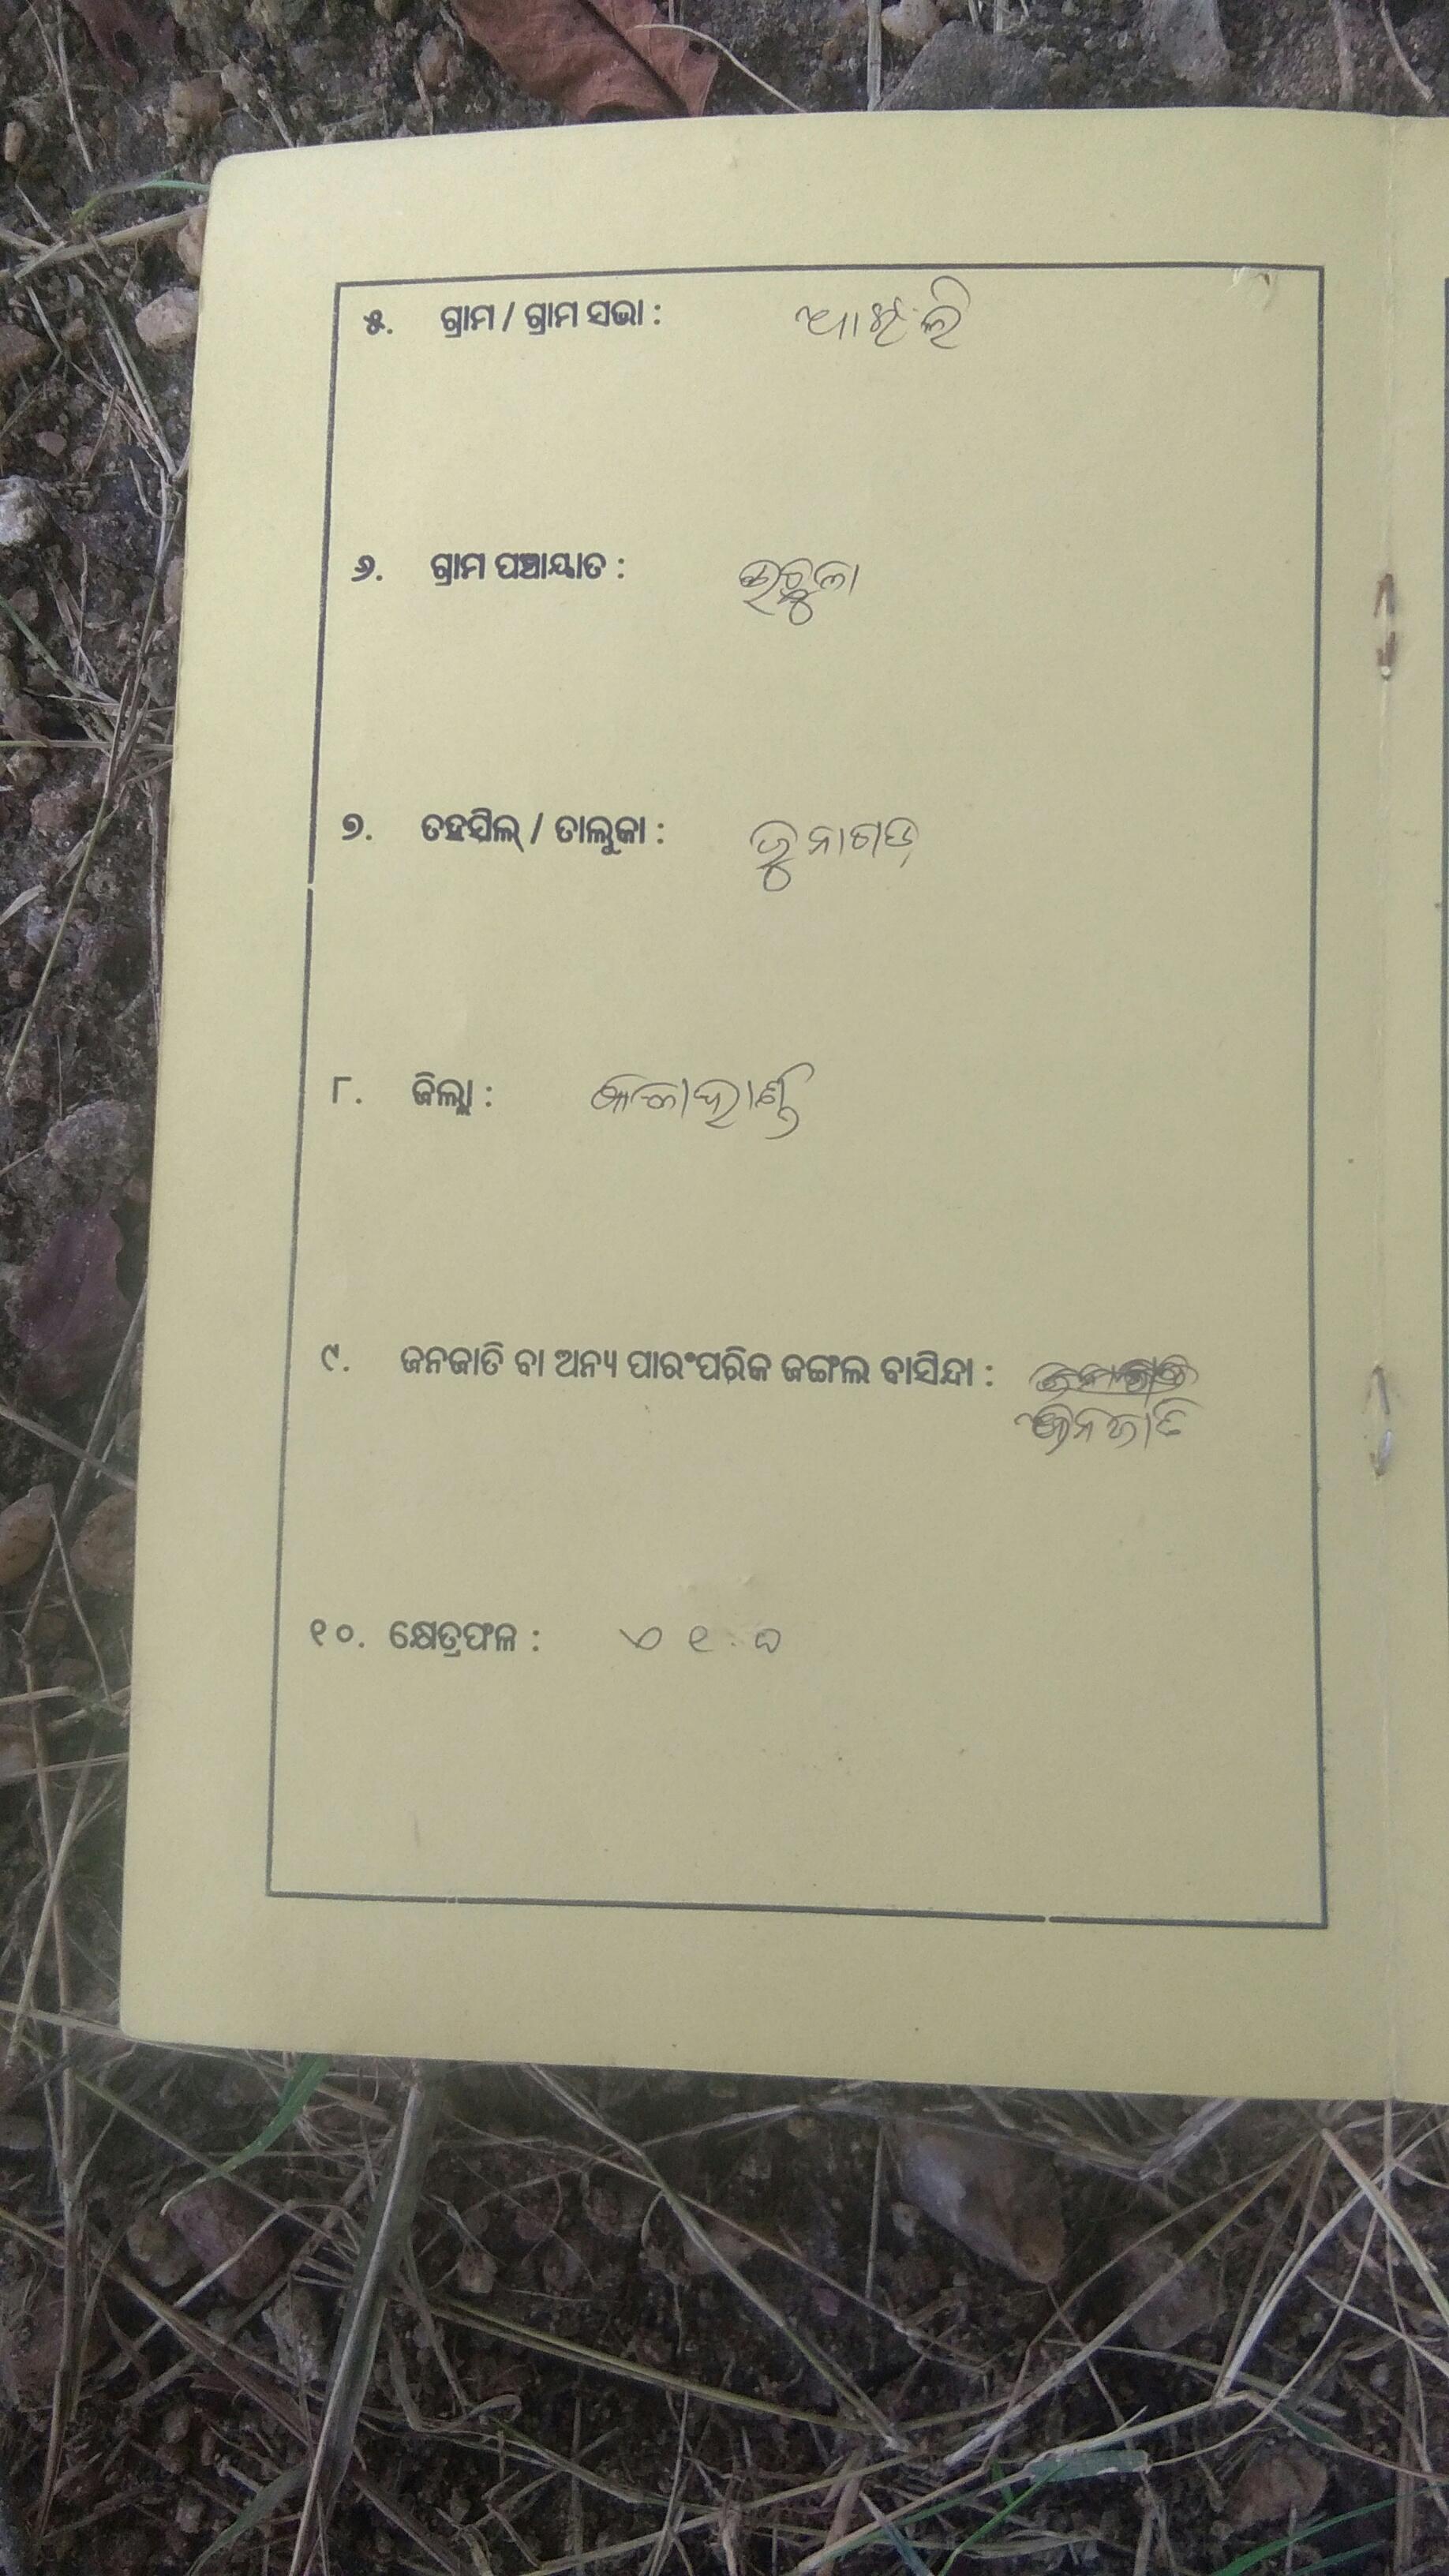 ୫. ଗ୍ରାମ / ଗ୍ରାମ ସଭା :
୬. ଗ୍ରାମ ପଞ୍ଚାୟାତ :
୭. ତହସିଲ୍ / ତାଲୁକା : ଜୁନାଗଡ଼
୮. ଜିଲ୍ଲା : କଳାହାଣ୍ଡି
୯. ଜନଜାତି ବା ଅନ୍ୟ ପାରଂପରିକ ଜଙ୍ଗଲ ବାସିନ୍ଦା :
ଜନଜାତି
୧୦. କ୍ଷେତ୍ରଫଳ :